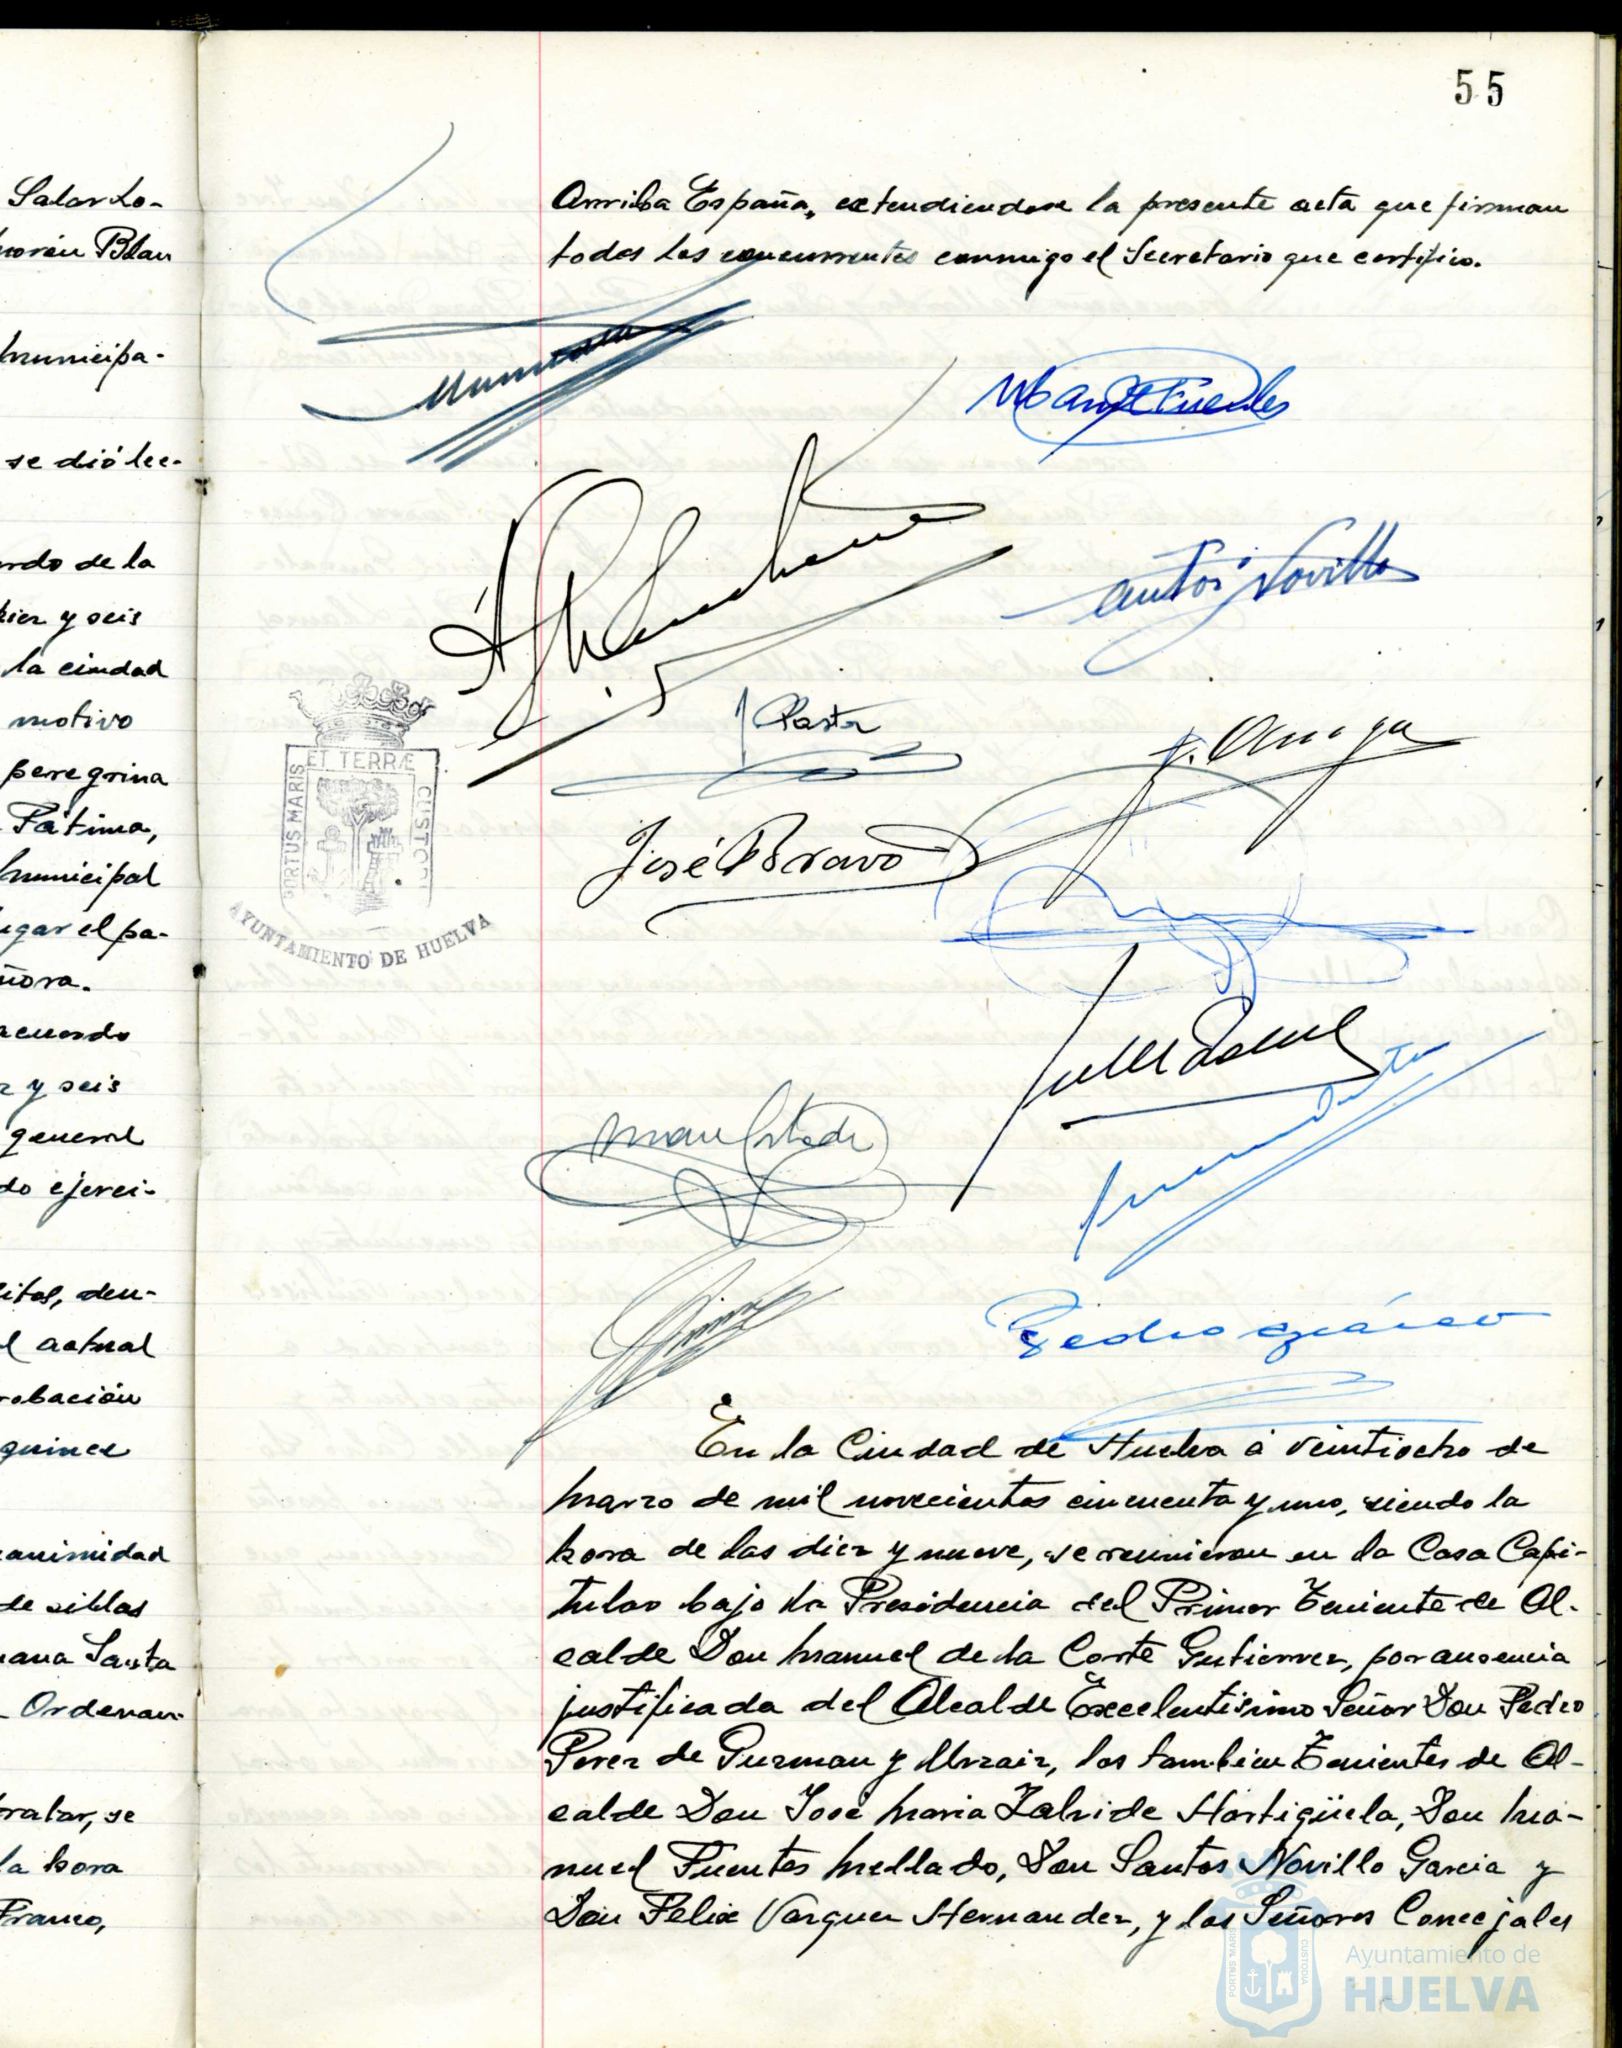 Salardo-
morén Blan
municipa-
se dió lec-
rdo de la
diez y seis
la ciudad
motivo
peregrina
Fátima,
municipal
ugar el pa-
ñora.
acuerdo
z y seis
general
do ejerci-
itos, den-
l actual
robación
quince
animidad
de sillas
mana Santa
Ordenan-
tratar, se
la hora
Franco,
55
Arriba España, extendiendose la presente acta que firman
todos los concurrentes conmigo el Secretario que certifico.
Man Fuentes
Santos Novillo
J Pastor
José Bravo
PORTUS MARIS ET TERRÆ CUSTODIA
AYUNTAMIENTO DE HUELVA
En la Ciudad de Huelva á veintiocho de
Marzo de mil novecientos cincuenta y uno, siendo la
hora de las diez y nueve, se reunieron en la Casa Capi-
tular bajo la Presidencia del Primer Teniente de Al-
calde Don Manuel de la Corte Gutierrez, por ausencia
justificada del Alcalde Excelentísimo Señor Don Pedro
Perez de Guzman y Urzaiz, los tambien Tenientes de Al-
calde Don José Maria Zalvide Hortigüela, Don Ma-
nuel Fuentes Mellado, Don Santos Novillo Garcia y
Don Felix Vazquez Hernandez, y los Señores Concejales
PORTUS MARIS CUSTODIA
Ayuntamiento de
HUELVA